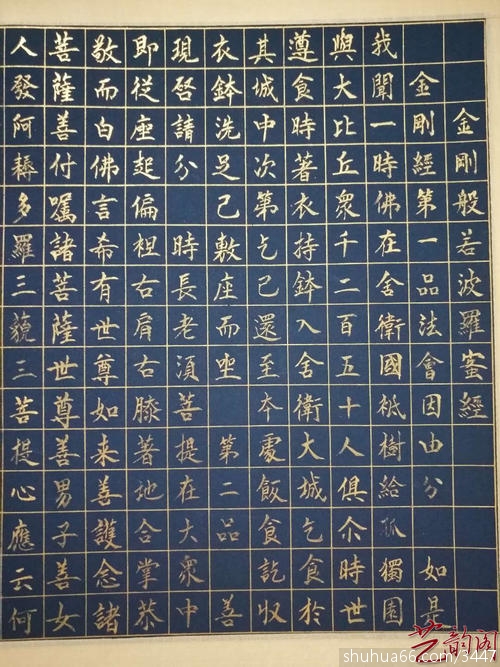 金剛般若波羅蜜經
金剛經第一品法會因由分 如是
我聞一時佛在舍衛國祇樹給孤獨園
與大比丘眾千二百五十人俱尒時世
尊食時著衣持鉢入舍衛大城乞食於
其城中次第乞已還至夲處飯食訖収
衣鉢洗足已敷座而坐 第二品 善
現啓請分 時長老湏菩提在大眾中
即從座起偏袒右肩右膝著地合掌恭
敬而白佛言希有世尊如来善護念諸
菩薩善付囑諸菩薩世尊善男子善女
人發阿耨多羅三藐三菩提心應云何
艺韵阁
shuhua66.com/3447